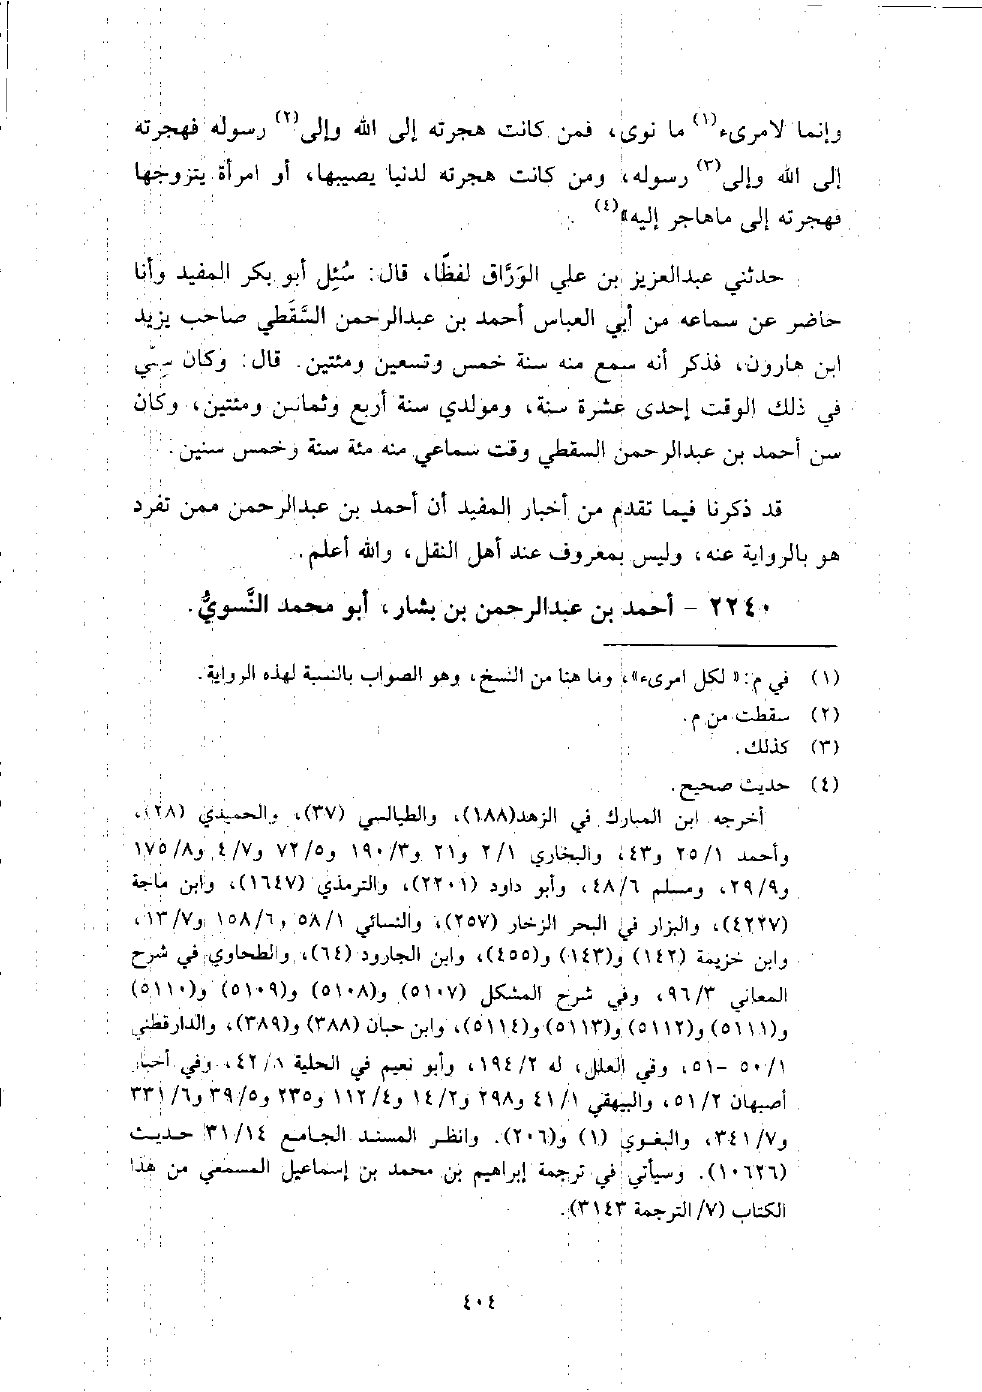 وإنما لامرىء(١) ما نوى، فمن كانت هجرته إلى الله وإلى(٢) رسوله فهجرته
إلى الله وإلى(٣) رسوله، ومن كانت هجرته لدنيا يصيبها، أو امرأة يتزوجها
فهجرته إلى ماهاجر إليه»(٤).
حدثني عبدالعزيز بن علي الوَرَّاق لفظًا، قال: سُئِل أبو بكر المفيد وأنا
حاضر عن سماعه من أبي العباس أحمد بن عبدالرحمن السَّقَطي صاحب يزيد
ابن هارون، فذكر أنه سمع منه سنة خمس وتسعين ومئتين. قال: وكان سِنِّي
في ذلك الوقت إحدى عشرة سنة، ومولدي سنة أربع وثمانين ومئتين، وكان
سن أحمد بن عبدالرحمن السقطي وقت سماعي منه مئة سنة وخمس سنين.
قد ذكرنا فيما تقدم من أخبار المفيد أن أحمد بن عبدالرحمن ممن تفرد
هو بالرواية عنه، وليس بمعروف عند أهل النقل، والله أعلم.
٢٢٤٠ - أحمد بن عبدالرحمن بن بشار، أبو محمد النَّسويُّ.
(١) في م: «لكل امرىء»، وما هنا من النسخ، وهو الصواب بالنسبة لهذه الرواية.
(٢) سقطت من م.
(٣) كذلك.
(٤) حديث صحيح.
أخرجه ابن المبارك في الزهد(١٨٨)، والطيالسي (٣٧)، والحميدي (٢٨)،
وأحمد ١/ ٢٥ و٤٣، والبخاري ١/ ٢ و٢١ و٣/ ١٩٠ و٥/ ٧٢ و٧/ ٤ و٨/ ١٧٥
و٩/ ٢٩، ومسلم ٦/ ٤٨، وأبو داود (٢٢٠١)، والترمذي (١٦٤٧)، وابن ماجة
(٤٢٢٧)، والبزار في البحر الزخار (٢٥٧)، والنسائي ١/ ٥٨ و٦/ ١٥٨ و٧/ ١٣،
وابن خزيمة (١٤٢) و(١٤٣) و(٤٥٥)، وابن الجارود (٦٤)، والطحاوي في شرح
المعاني ٣/ ٩٦، وفي شرح المشكل (٥١٠٧) و(٥١٠٨) و(٥١٠٩) و(٥١١٠)
و(٥١١١) و(٥١١٢) و(٥١١٣) و(٥١١٤)، وابن حبان (٣٨٨) و(٣٨٩)، والدارقطني
١/ ٥٠ -٥١، وفي العلل، له ٢/ ١٩٤، وأبو نعيم في الحلية ٨/ ٤٢، وفي أخبار
أصبهان ٢/ ٥١، والبيهقي ١/ ٤١ و٢٩٨ و٢/ ١٤ و٤/ ١١٢ و٢٣٥ و٥/ ٣٩ و٦/ ٣٣١
و٧/ ٣٤١، والبغوي (١) و(٢٠٦). وانظر المسند الجامع ١٤/ ٣١ حديث
(١٠٦٢٦). وسيأتي في ترجمة إبراهيم بن محمد بن إسماعيل المسمعي من هذا
الكتاب (٧/ الترجمة ٣١٤٣).
٤٠٤